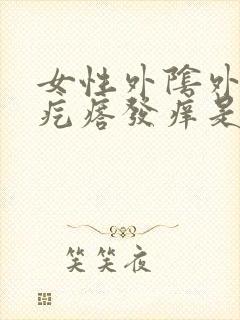 女性外陰外
疙瘩發痒是
笑笑夜